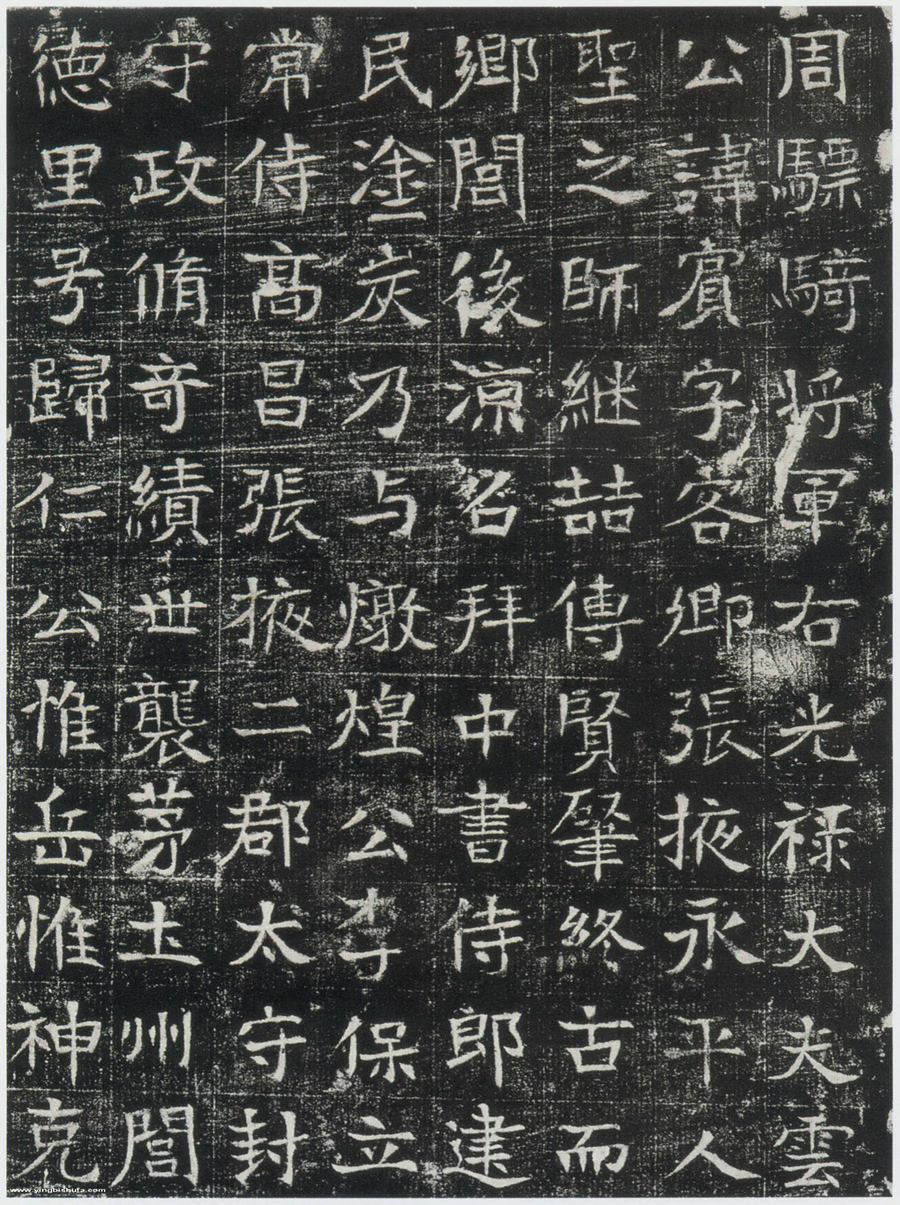 周驃騎将軍右光禄大夫雲
公諱賓字客卿張掖永平人
聖之師継喆傳賢肇終古而
鄉閭後涼召拜中書侍郎建
民塗炭乃与燉煌公李保立
常侍髙昌張掖二郡太守封
守政脩竒績世襲茅土州閭
徳里号歸仁公惟岳惟神克
www.yingbishufa.com